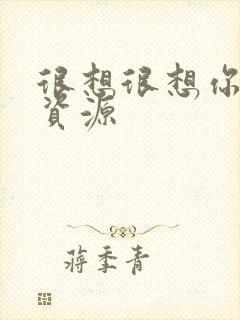 很想很想你
資源
蔣季青